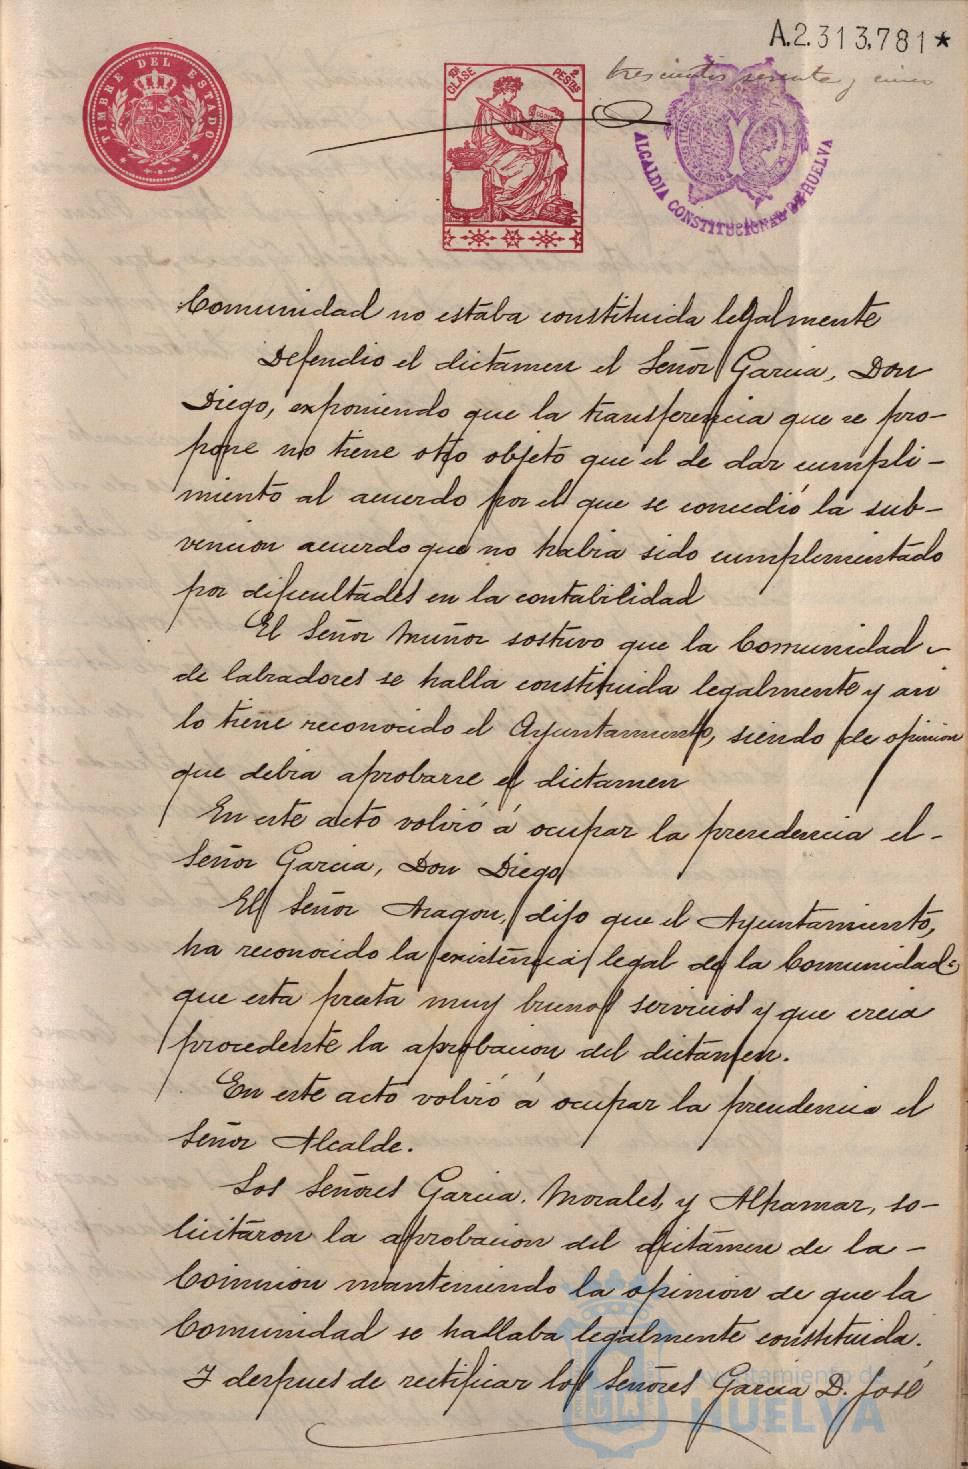 A.2.313,781★
trescientos sesenta y cinco
TIMBRE DEL ESTADO
10ª CLASE
2 PESETAS
ALCALDIA CONSTITUCIONAL DE HUELVA
Comunidad no estaba constituida legalmente
Defendio el dictámen el Señor Garcia, Don
Diego, exponiendo que la transferencia que se pro-
pone no tiene otro objeto que el de dar cumpli-
miento al acuerdo por el que se concedió la sub-
vencion acuerdo que no habia sido cumplimentado
por dificultades en la contabilidad
El Señor Muñoz sostuvo que la Comunidad -
de labradores se halla constituida legalmente y asi
lo tiene reconocido el Ayuntamiento, siendo de opinion
que debia aprobarse el dictamen
En este acto volvió á ocupar la presidencia el -
Señor Garcia, Don Diego
El Señor Aragon, dijo que el Ayuntamiento,
ha reconocido la existencia legal de la Comunidad:
que esta presta muy buenos servicios y que creia
procedente la aprobacion del dictámen.
En este acto volvió á ocupar la presidencia el
Señor Alcalde.
Los Señores Garcia, Morales, y Alpamar, so-
licitaron la aprobacion del dictámen de la -
Comision manteniendo la opinion de que la
Comunidad se hallaba legalmente constituida.
Y despues de rectificar los Señores Garcia D. José
Ayuntamiento de
HUELVA